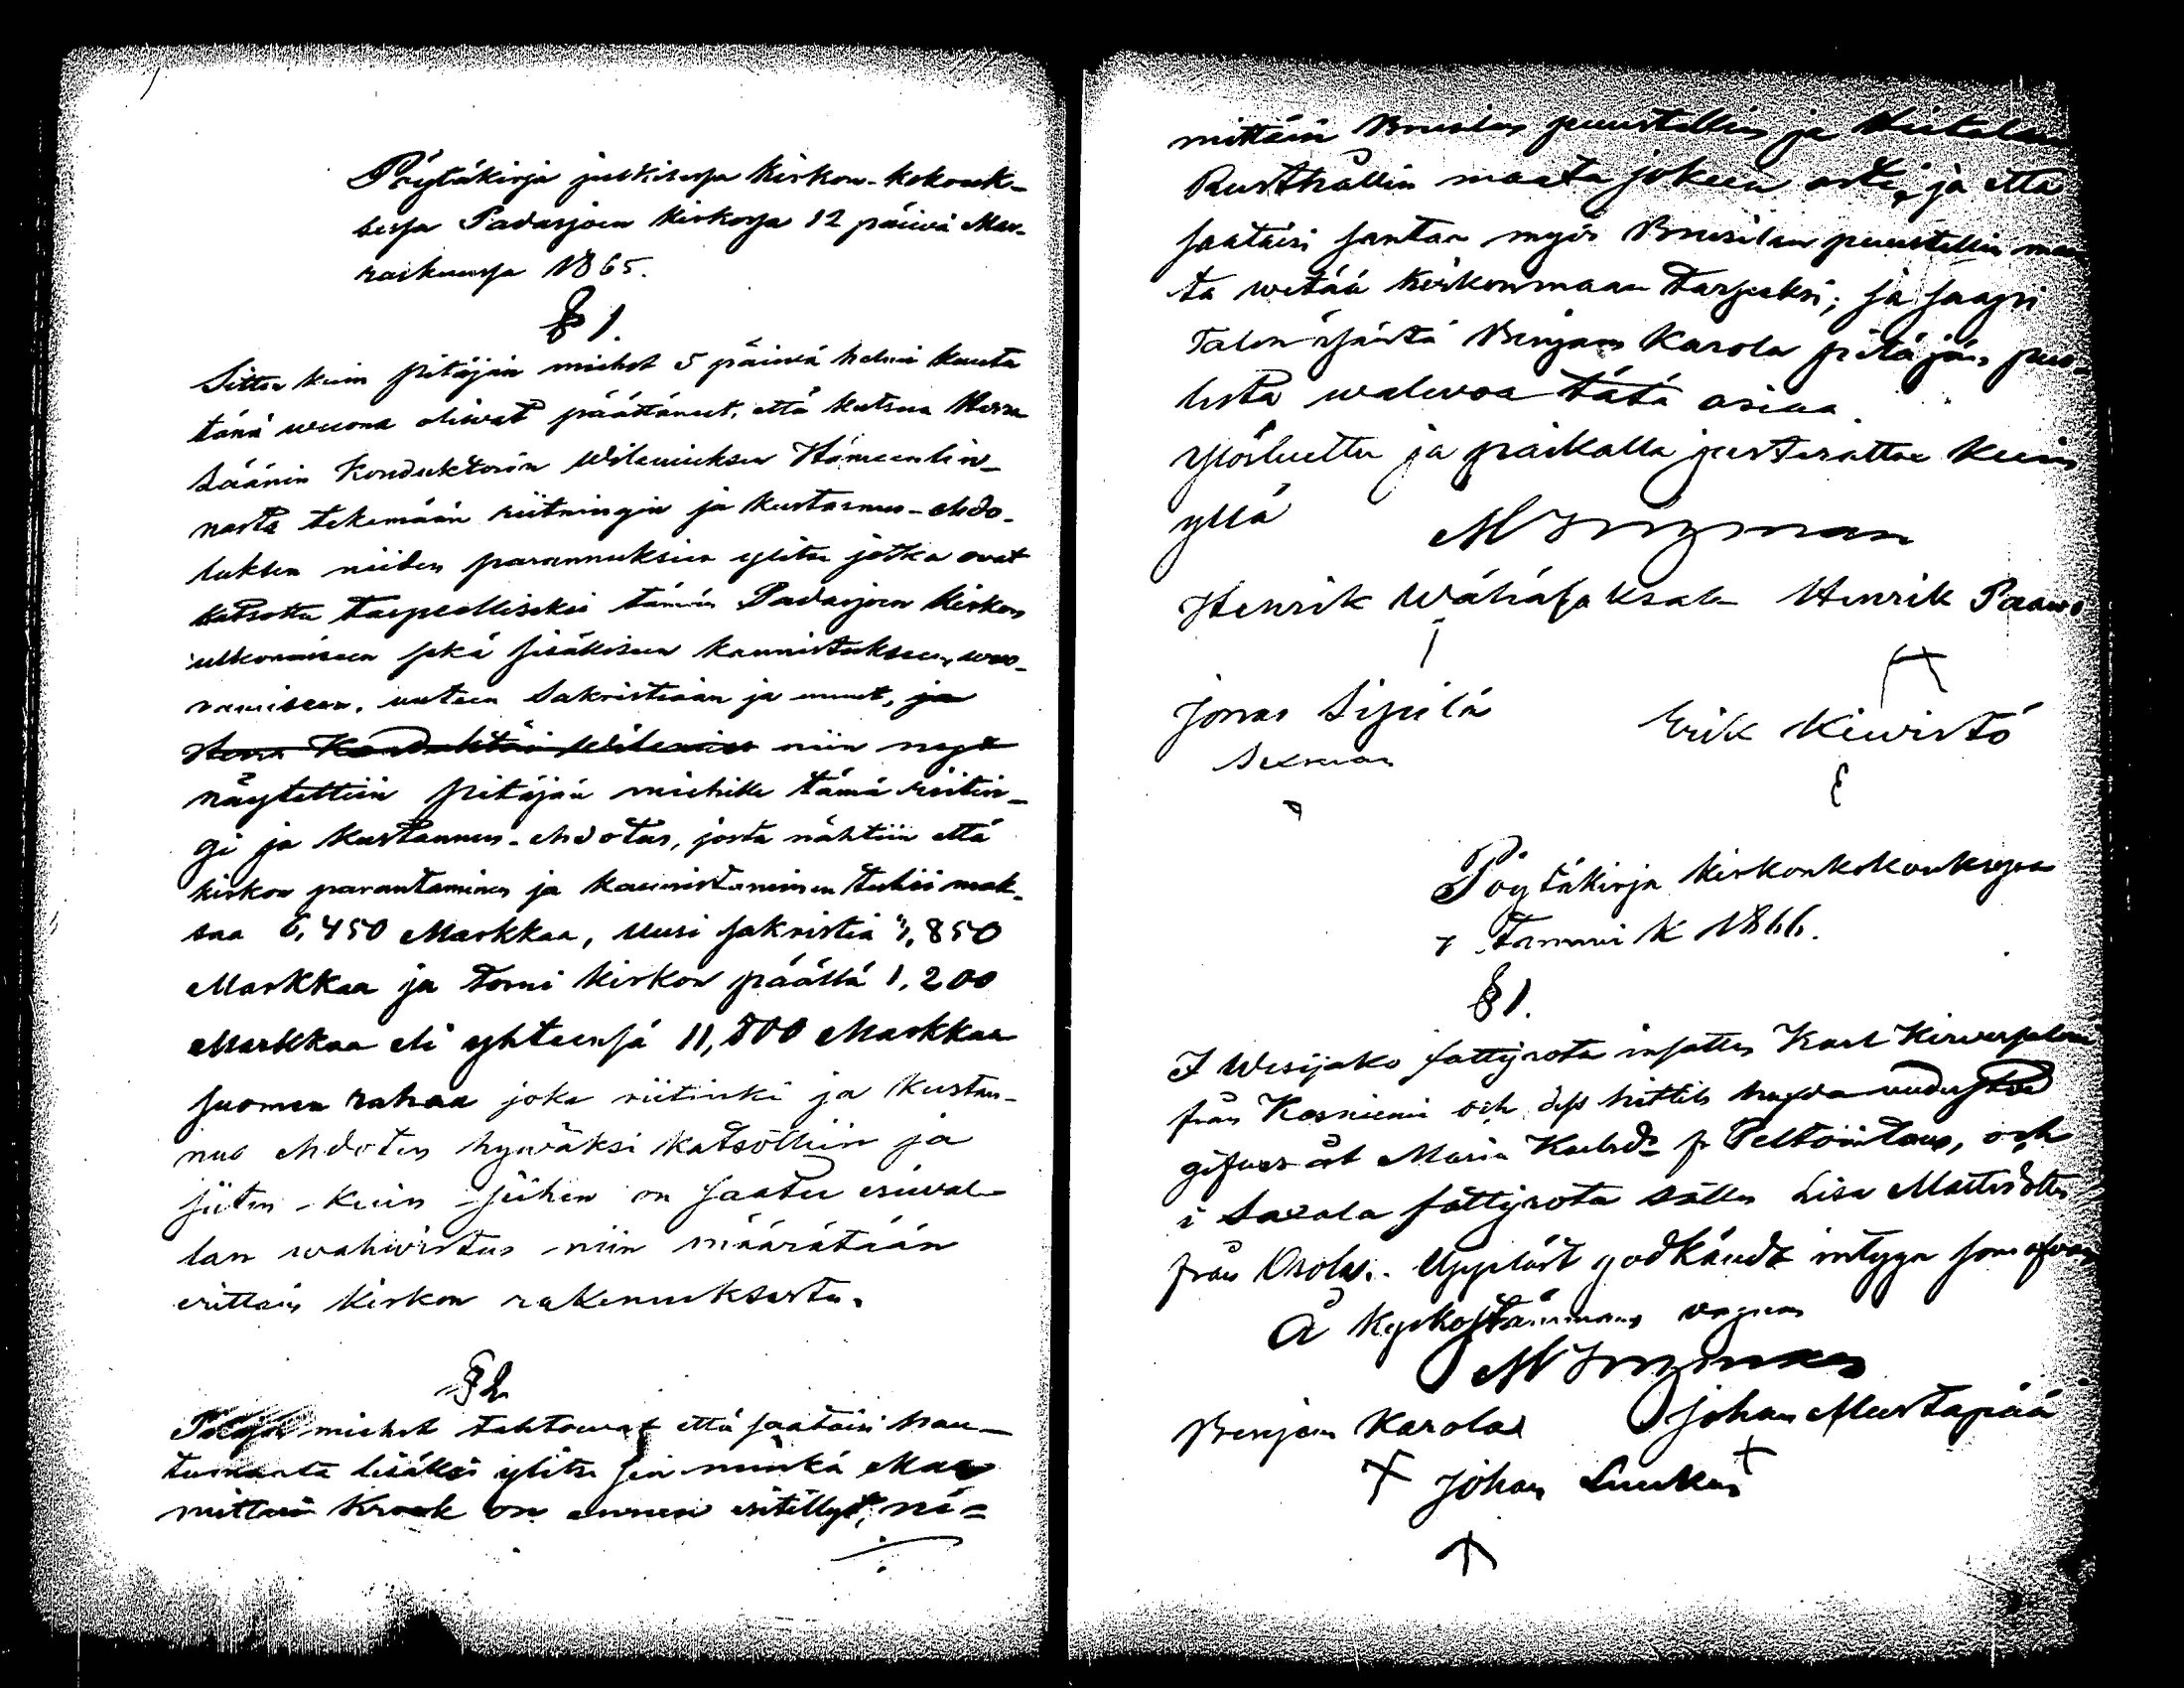 Pöytäkirja julkisessa kirkon-kokouk-
sessa Padasjoen kirkossa 12 päivä Mar-
raskuussa 1865.
§ 1.
Sitten kuin pitäjän miehet 5 päivä helmi kuuta
tänä wuona oliwat päättäneet, että kutsua Herra
Läänin Konduktorin Wileniuksen Hämeenlin-
nasta tekemään riitningin ja kustannus-ehdo-
tuksen niiden parannuksien ylitse jotka ovat
katsottu tarpeelliseksi tämän Padasjoen kirkon
ulkonaiseen sekä sisälliseen kaunistukseen, wuo-
raamiseen, uuteen Sakristiaan ja muut, ja
Herra Konduktöri Wilenius niin nyt
näytettiin pitäjän miehille tämä riitin-
gi ja kustannus-ehdotus, josta nähtiin että
kirkon parantaminen ja kaunistaminen tulisi mak-
saa 6,450 Markkaa, Uusi sakristia 3,850
Markkaa ja torni kirkon päällä 1,200
Markkaa eli yhteensä 11,500 Markkaa
suomen rahaa joka riitinki ja kustan-
nus ehdotus hywäksi katsottiin ja
siiten - kuin siihen on saatu esiwal-
lan wahwistus niin määrätään
erittäin kirkon rakennuksesta.
§ 2
Pitäjän miehet tahtowat että saataisi hau-
tamaata lisäksi ylitse sen minkä Maa
mittari Krook on ennen esitellyt, ni=
mittäin Brusilan puustellin ja Hietalan
Rusthollin maata jokeen asti, ja että
saataisi santaa myös Brusilan puustellin maa
ta wetää kirkonmaan tarpeksi; ja saapi
Talon isäntä Benjam Karola pitäjän puo-
lesta walwoa tätä asiaa.
Ylösluettu ja paikalla justerattu kuin
yllä M Ingman
Henrik Wähäsaksala Henrik Paawo
Jonas Sipilä Erik Kiwistö
Sexman
Pöytäkirja kirkonkokouksessa
7 Tammi K 1866.
§ 1.
I Wesijako fattigrota insattes Karl
från Kasniemi och dess hittils
gifves åt Maria Karlsd. fr Peltointaus, och
i Saxala fattigrota sattes Lisa Mattsdotter
från Osola. Uppläst godkändt intyga som ofvan
Å Kyrkostämmans vägnar
M Ingman
Benjam Karola Johan Mustapää
Johan Luukas